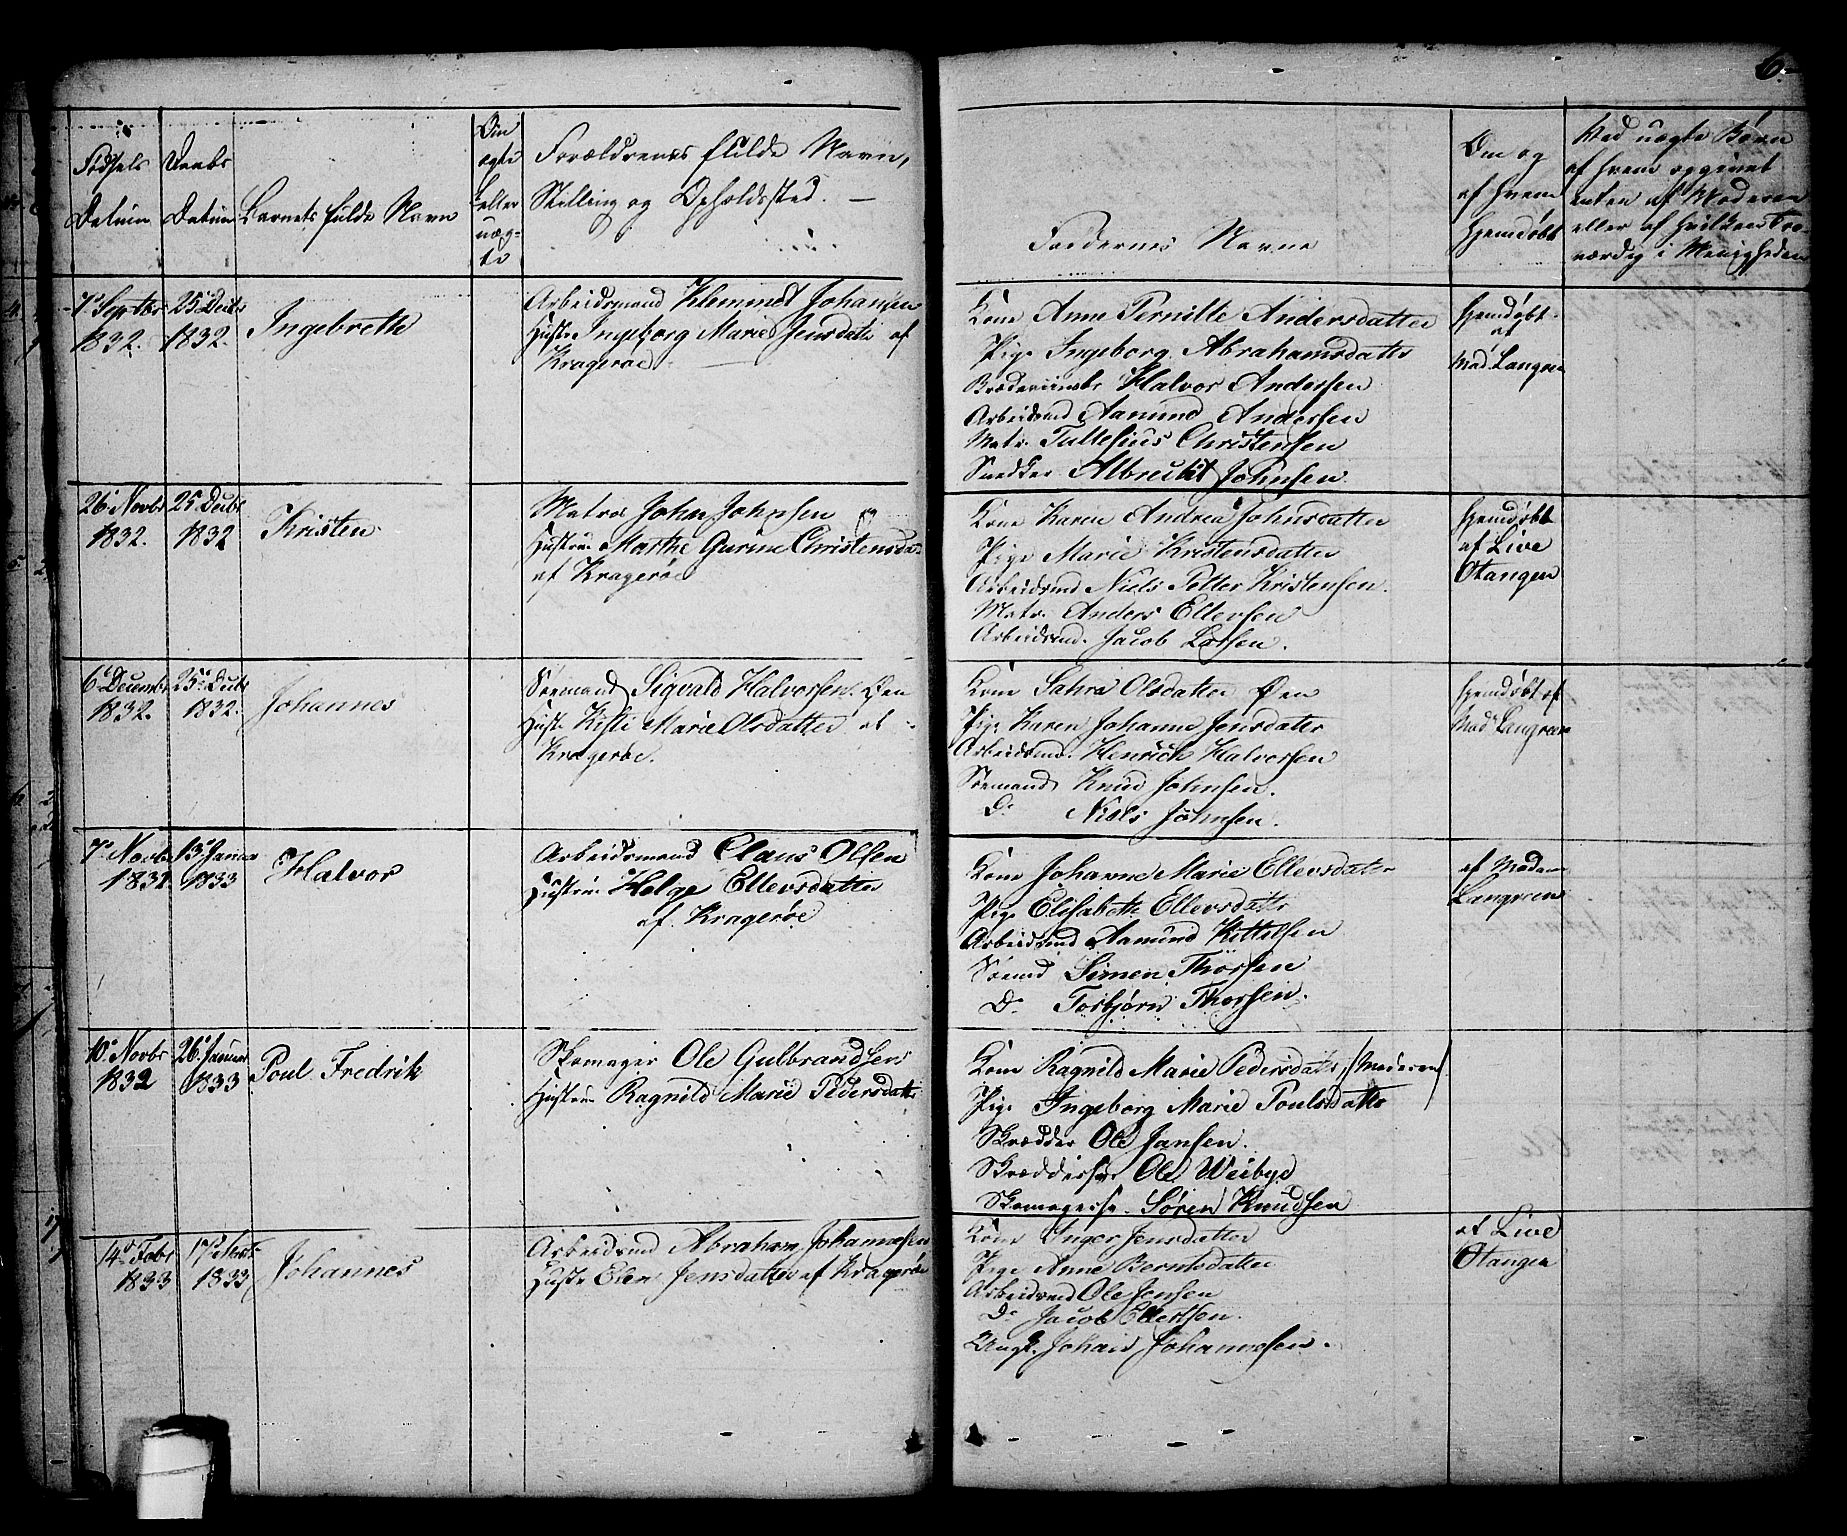 6.
Fødsels
Datum
Daabs
Datum
Barnets fulde Navn
Om
ægte
eller
uæg-
te
Forældrenes fulde Navn,
Stilling og Opholdssted. —
Faddernes Navne
Om og
af hvem
hjemdøbt
Ved uægte Børn
af hvem opgivet
enten af Moderen
eller af hvilken Tro-
værdig i Menigheden
7de Septbr
1832.
25de Decbr
1832.
Ingebrethe
Arbeidsmand Klemmet Johansen
Hustr. Ingeborg Marie Jensdatt. af
Kragerøe. —
Kone Anne Pernille Andersdatter
Pige Ingeborg Abrahamsdatter
Halvor Andersen
Arbeidsmd Aamund Andersen
Matr. Tullesius Christensen
Snedker Albrecht Johnsen.
hjemdøbt
af
Mad. Langreen
26. Novbr
1832.
25 Decbr
1832
Kristen
Matros John Johnsen og
Hustrue Marthe Gurine Christensda.
af Kragerøe
Kone Karen Andrea Johnsdatter
Pige Marie Kristensdatter
Arbeidsmd Niels Petter Kristensen.
Matr. Anders Ellevsen
Arbeidsmd. Jacob Larsen.
hjemdøbt
af Live
Otangen
6de Decembr
1832.
25de Decbr
1832.
Johannes
Søemand Sigvald Halvorsen. Øen
Hustr. Kisti Marie Olsdatter af
Kragerøe.
Kone Sahra Olsdatter Øen
Pige Karen Johanne Jensdatter
Arbeidsmd. Henrich Halvorsen
Søemand Knud Johnsen.
Do Niels Johnsen.
hjemdøbt af
Mad. Langreen
7de Novbr
1832.
13de Januar
1833
Halvor
Arbeidsmand Claus Olsen
Hustrue Helge Ellevsdatter
af. Kragerøe
Kone Johanne Marie Ellevsdatter
Pige Elisabeth Ellevsdatter
Arbeidsmd Aamund Kittilsen
Søemd Simen Thorsen
Do Torbjørn Thorsen.
af Madam
Langreen
10de Novbr
1832
26de Januar
1833
Poul Fredrik
Skomager Ole Gulbrandsen
Hustrue Ragnild Marie Pedersdatt.
Kone Ragnild Marie Pedersdatter /Moderen/
Pige Ingeborg Marie Poulsdatter
Skrædder Ole Jansen.
Skræddersv. Ole Weibye
Skomagersv. Søren Knudsen
14de Febr
1833
17de
1833
Johannes
Arbeidsmd Abraham Johannesen
Hustr. Elen Jensdatter af Kragerøe
Kone Inger Jensdatter
Pige Anne Berntsdatter
Arbeidsmd Ole Jensen
Do Jacob Ellertsen.
Ungk. Johan Johannesen.
af Live
Otangen